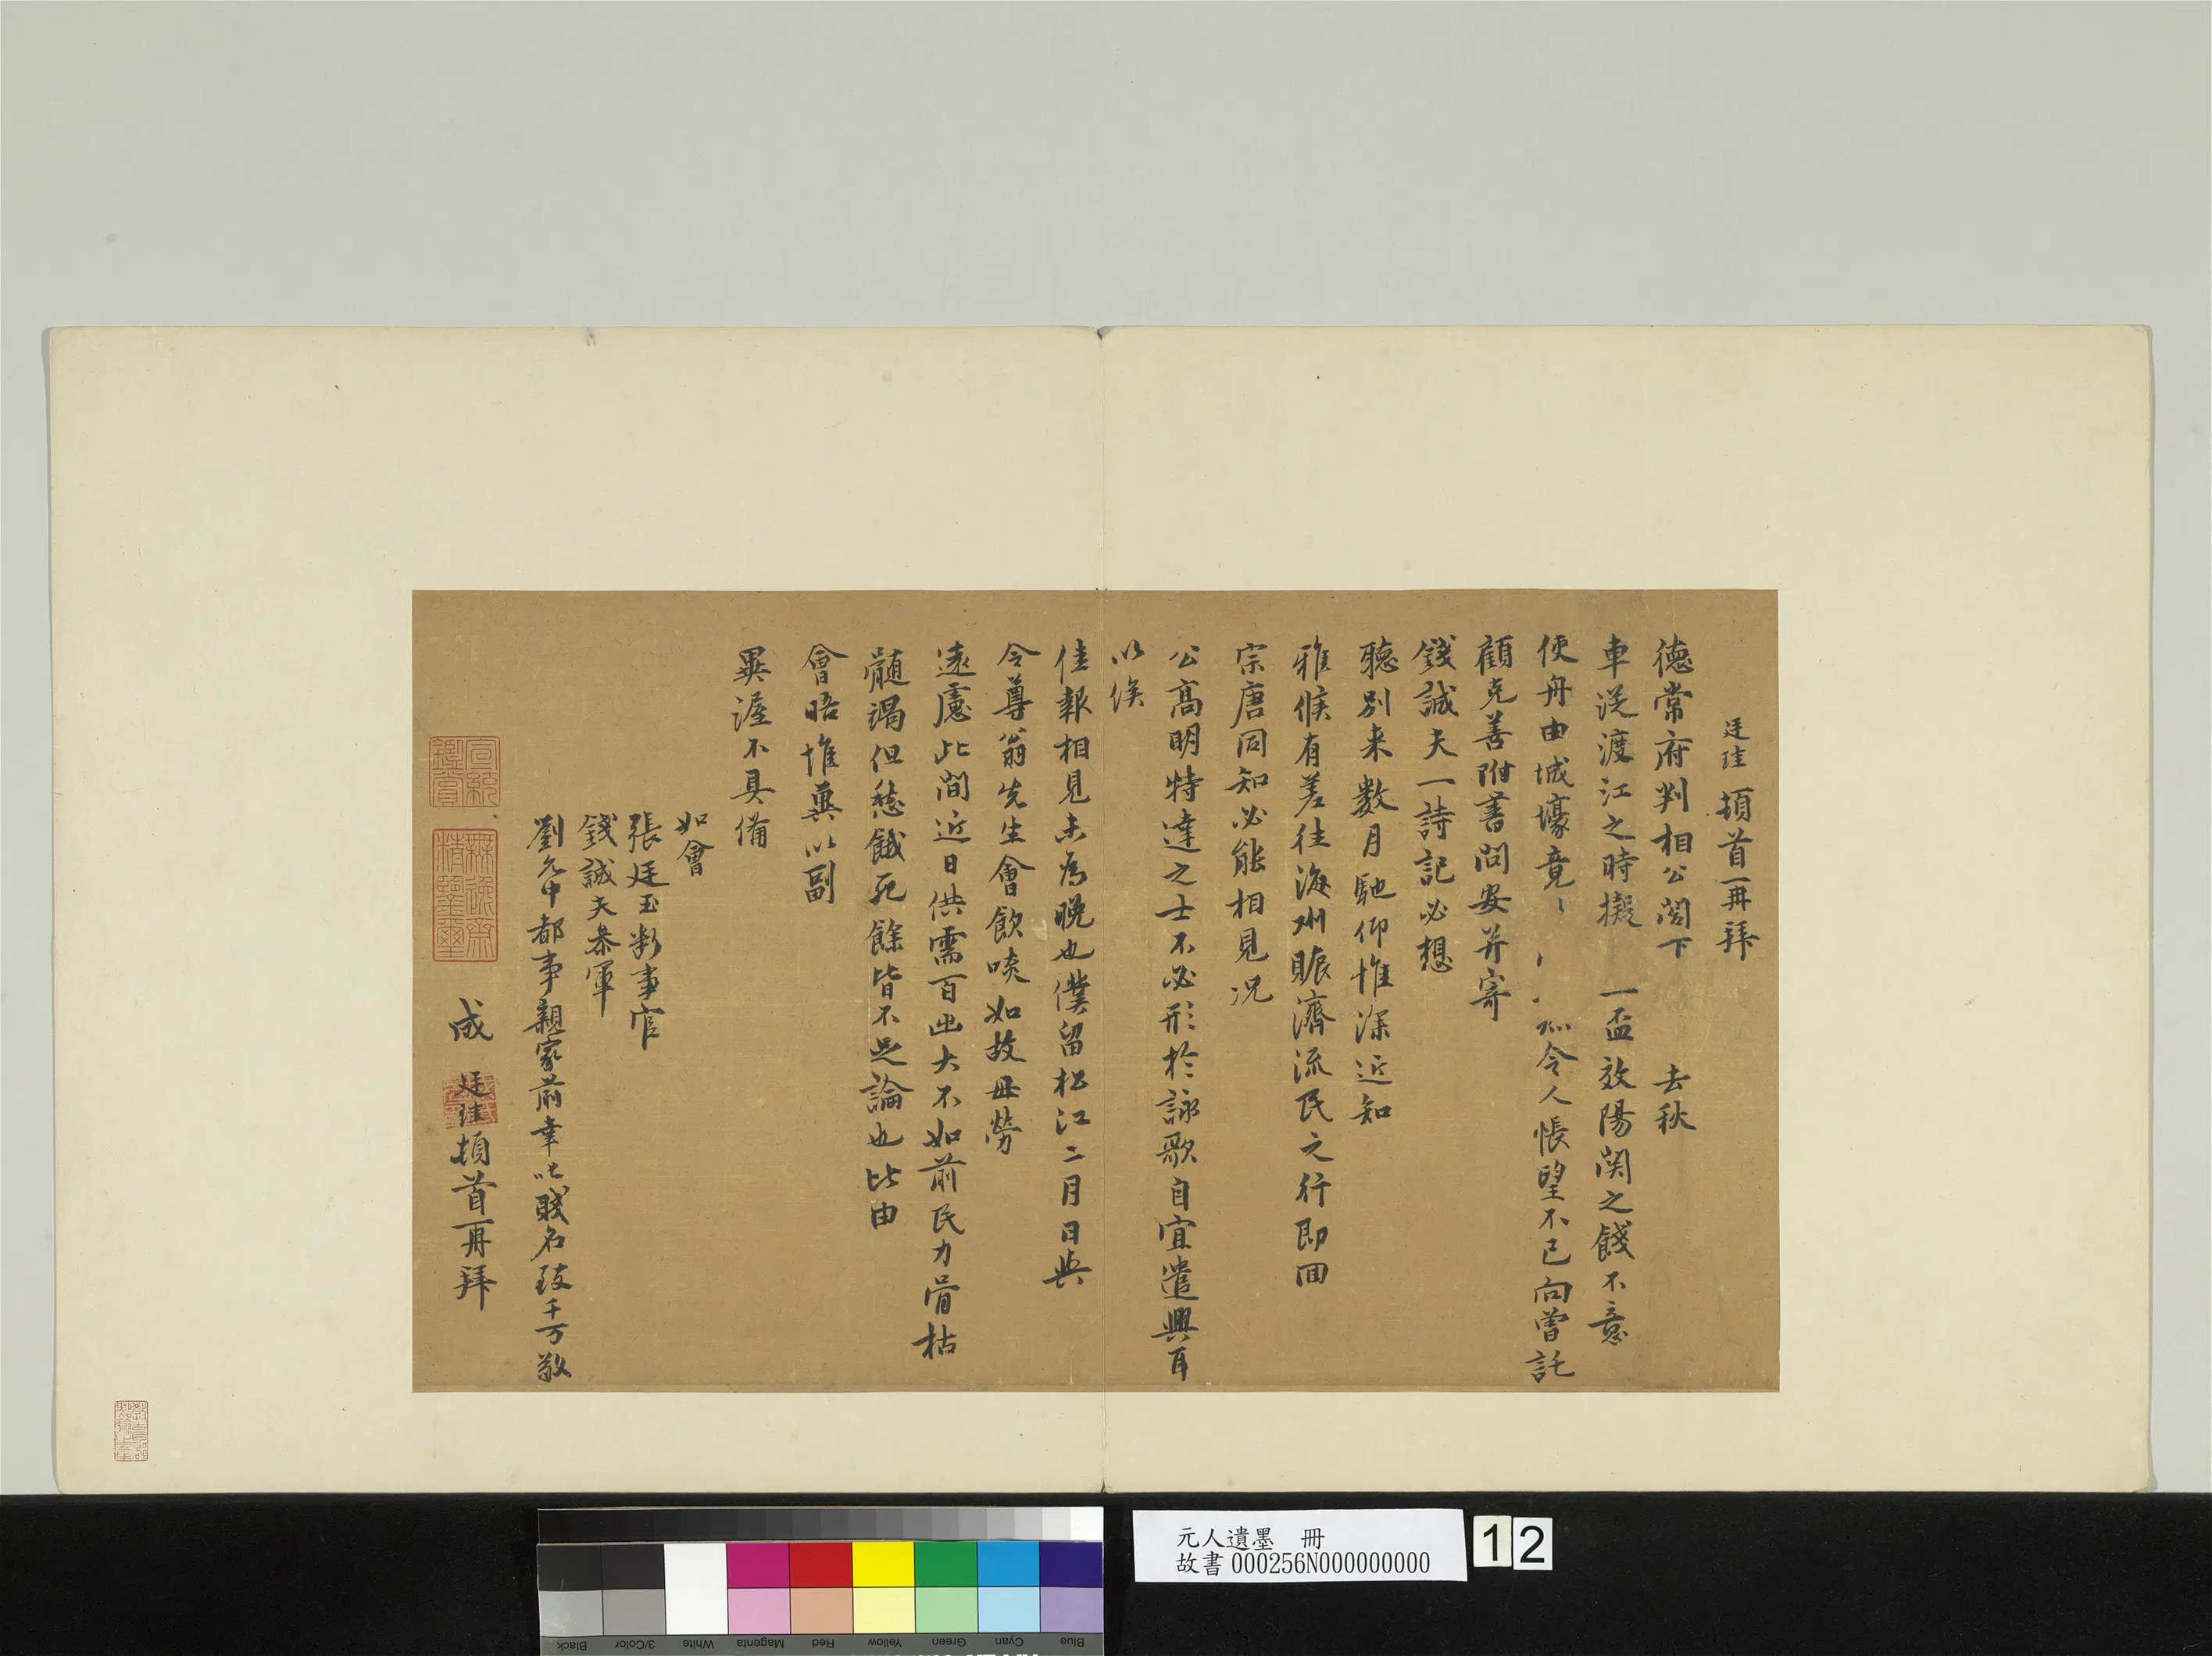 廷珪頓首再拜
德常府判相公閣下 去秋
車從渡江之時擬 一盃效陽関之餞不意
使舟由城壕竟 令人悵望不已向曾託
顧克善附書問安并寄
錢誠夫一詩記必想
聽別来數月馳仰惟深近知
雅候有差往海州賑濟流民之行即回
宗唐同知必能相見况
公高明特達之士不必形於詠歌自宜遣興耳
以俟
佳報相見未為晚也僕留松江二月日與
令尊翁先生會飲啖如故毋勞
遠慮此間近日供需百出大不如前民力骨枯
髓竭但愁餓死餘皆不足論也比由
會晤惟冀以副
不具備
如會
張廷玉斷事官
錢誠夫叅軍
劉允中都事親家前幸呼賤名致千万敬
成 廷珪頓首再拜
宣統
鑑賞
無逸齋
精鑒璽
元人遺墨 冊
故書000256N000000000
12
Black
3/Color
White
Magenta
Red
Yellow
Green
Cyan
Blue